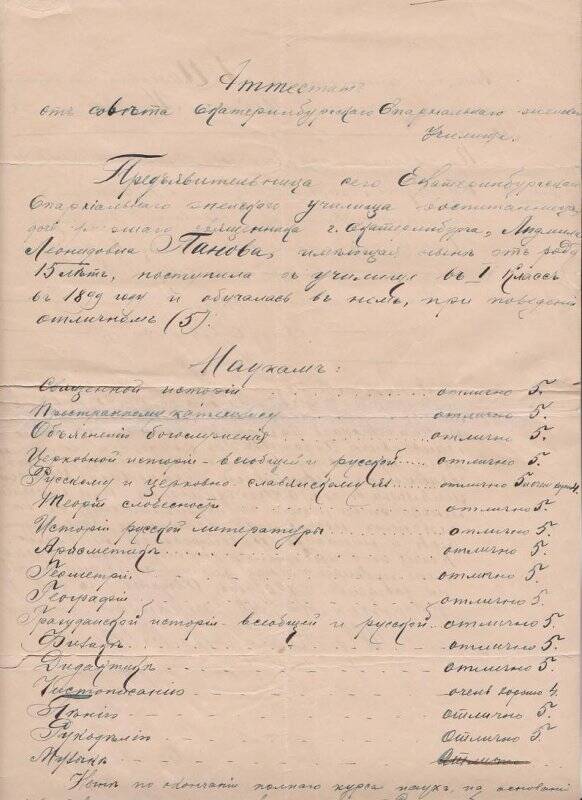 Аттестатъ
отъ совѣта Екатеринбургскаго Епархіальнаго женскаго
Училища.
Предъявительница сего Екатеринбургскаго
Епархіальнаго женскаго училища воспитанница,
дочь священника г. Екатеринбурга, Людмила
Леонидовна Панова, имѣющая нынѣ отъ роду
15 лѣтъ, поступила въ училище въ I классъ
въ 1899 году и обучалась въ немъ, при поведеніи
отличномъ (5).
Наукамъ:
Священной исторіи отлично 5.
Пространному катехизису отлично 5.
Объясненію богослуженія отлично 5.
Церковной исторіи - всеобщей и русской отлично 5.
Русскому и церковно-славянскому яз. отлично 5
Теоріи словесности отлично 5.
Исторіи русской литературы отлично 5.
Ариѳметикѣ отлично 5.
Геометріи отлично 5.
Географіи отлично 5.
Гражданской исторіи - всеобщей и русской отлично 5.
Физикѣ отлично 5.
Дидактикѣ отлично 5.
Чистописанію очень хорошо 4.
Пѣнію отлично 5.
Рукодѣлію отлично 5.
Музыкѣ
по окончаніи полнаго курса наукъ, на основаніи